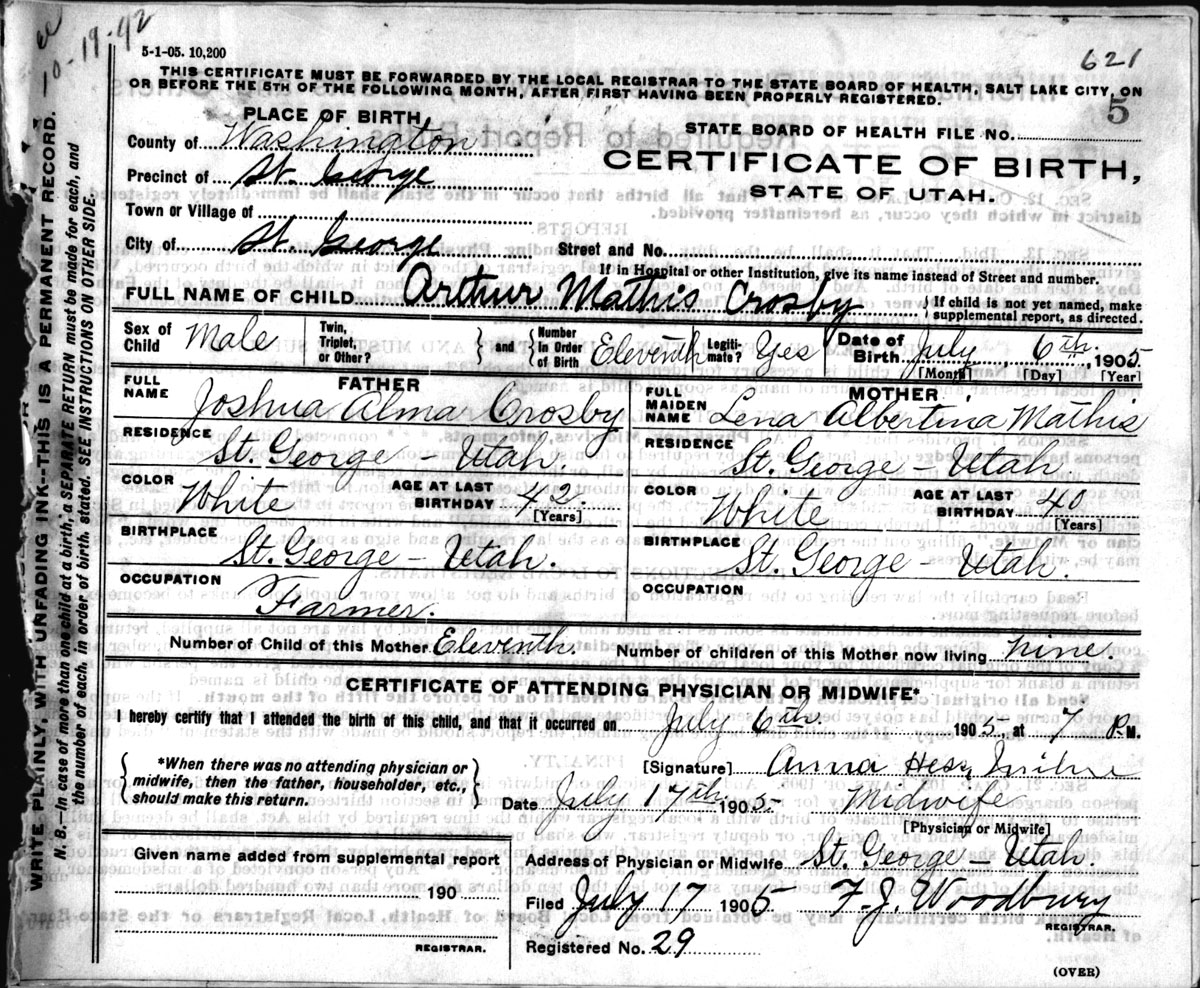 10-19-42
5-1-05. 10,200
621
THIS CERTIFICATE MUST BE FORWARDED BY THE LOCAL REGISTRAR TO THE STATE BOARD OF HEALTH, SALT LAKE CITY, ON
OR BEFORE THE 5TH OF THE FOLLOWING MONTH, AFTER FIRST HAVING BEEN PROPERLY REGISTERED.
5
PLACE OF BIRTH
STATE BOARD OF HEALTH FILE NO.
County of Washington
CERTIFICATE OF BIRTH,
Precinct of St. George
STATE OF UTAH.
Town or Village of
City of St. George Street and No.
If in Hospital or other Institution, give its name instead of Street and number.
FULL NAME OF CHILD Arthur Mathis Crosby { If child is not yet named, make supplemental report, as directed.
Sex of Child Male Twin, Triplet, or Other? } and { Number In Order of Birth Eleventh Legiti-mate? Yes Date of Birth July 6th, 1905
[Month] [Day] [Year]
FATHER MOTHER
FULL NAME Joshua Alma Crosby FULL MAIDEN NAME Lena Albertina Mathis
RESIDENCE St. George – Utah. RESIDENCE St. George – Utah.
COLOR White AGE AT LAST BIRTHDAY 42 [Years] COLOR White AGE AT LAST BIRTHDAY 40 [Years]
BIRTHPLACE St. George – Utah. BIRTHPLACE St. George – Utah.
OCCUPATION Farmer. OCCUPATION
Number of Child of this Mother Eleventh. Number of children of this Mother now living nine.
CERTIFICATE OF ATTENDING PHYSICIAN OR MIDWIFE*
I hereby certify that I attended the birth of this child, and that it occurred on July 6th. 1905, at 7 P.M.
{ *When there was no attending physician or midwife, then the father, householder, etc., should make this return. }
[Signature] Anna Hess
Date July 17th 1905 Midwife
[Physician or Midwife]
Given name added from supplemental report
Address of Physician or Midwife St. George – Utah.
190
Filed July 17 1905 F. J. Woodbury
REGISTRAR.
REGISTRAR.
Registered No. 29
(OVER)
WRITE PLAINLY, WITH UNFADING INK--THIS IS A PERMANENT RECORD.
N. B.—In case of more than one child at a birth, a SEPARATE RETURN must be made for each, and
the number of each, in order of birth, stated. SEE INSTRUCTIONS ON OTHER SIDE.